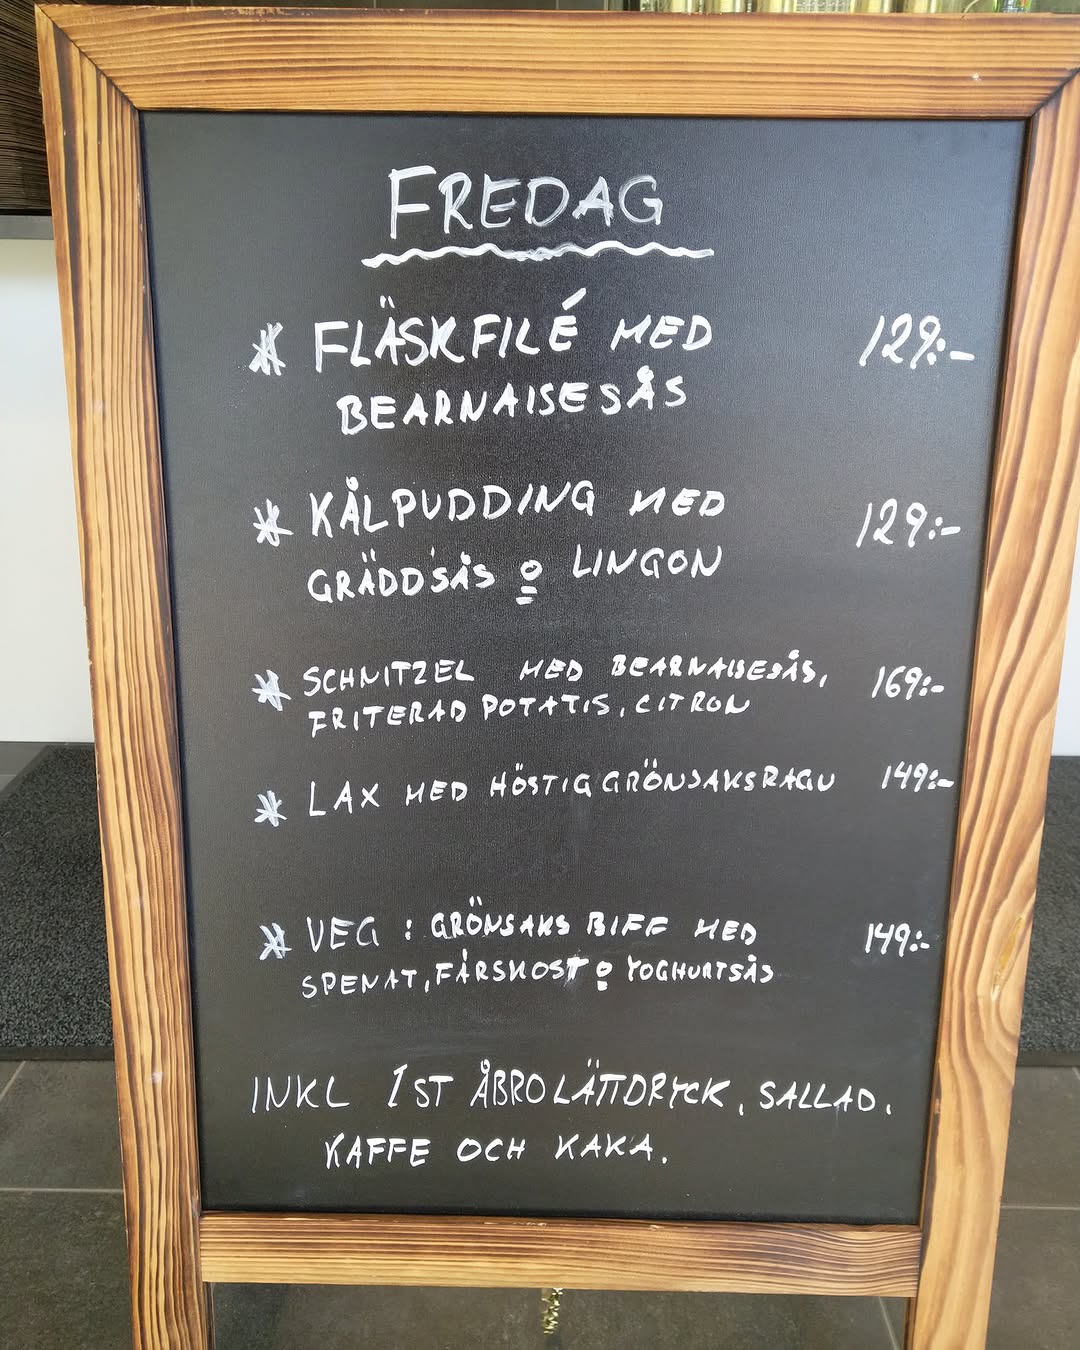 FREDAG
* FLÄSKFILÉ MED 129:-
BEARNAISESÅS
* KÅLPUDDING MED 129:-
GRÄDDSÅS o LINGON
* SCHNITZEL MED BEARNAISESÅS, 169:-
FRITERAD POTATIS, CITRON
* LAX MED HÖSTIG GRÖNSAKSRAGU 149:-
* VEG : GRÖNSAKS BIFF MED 149:-
SPENAT, FÄRSKOST o YOGHURTSÅS
INKL 1ST ÅBRO LÄTTDRYCK, SALLAD,
KAFFE OCH KAKA.